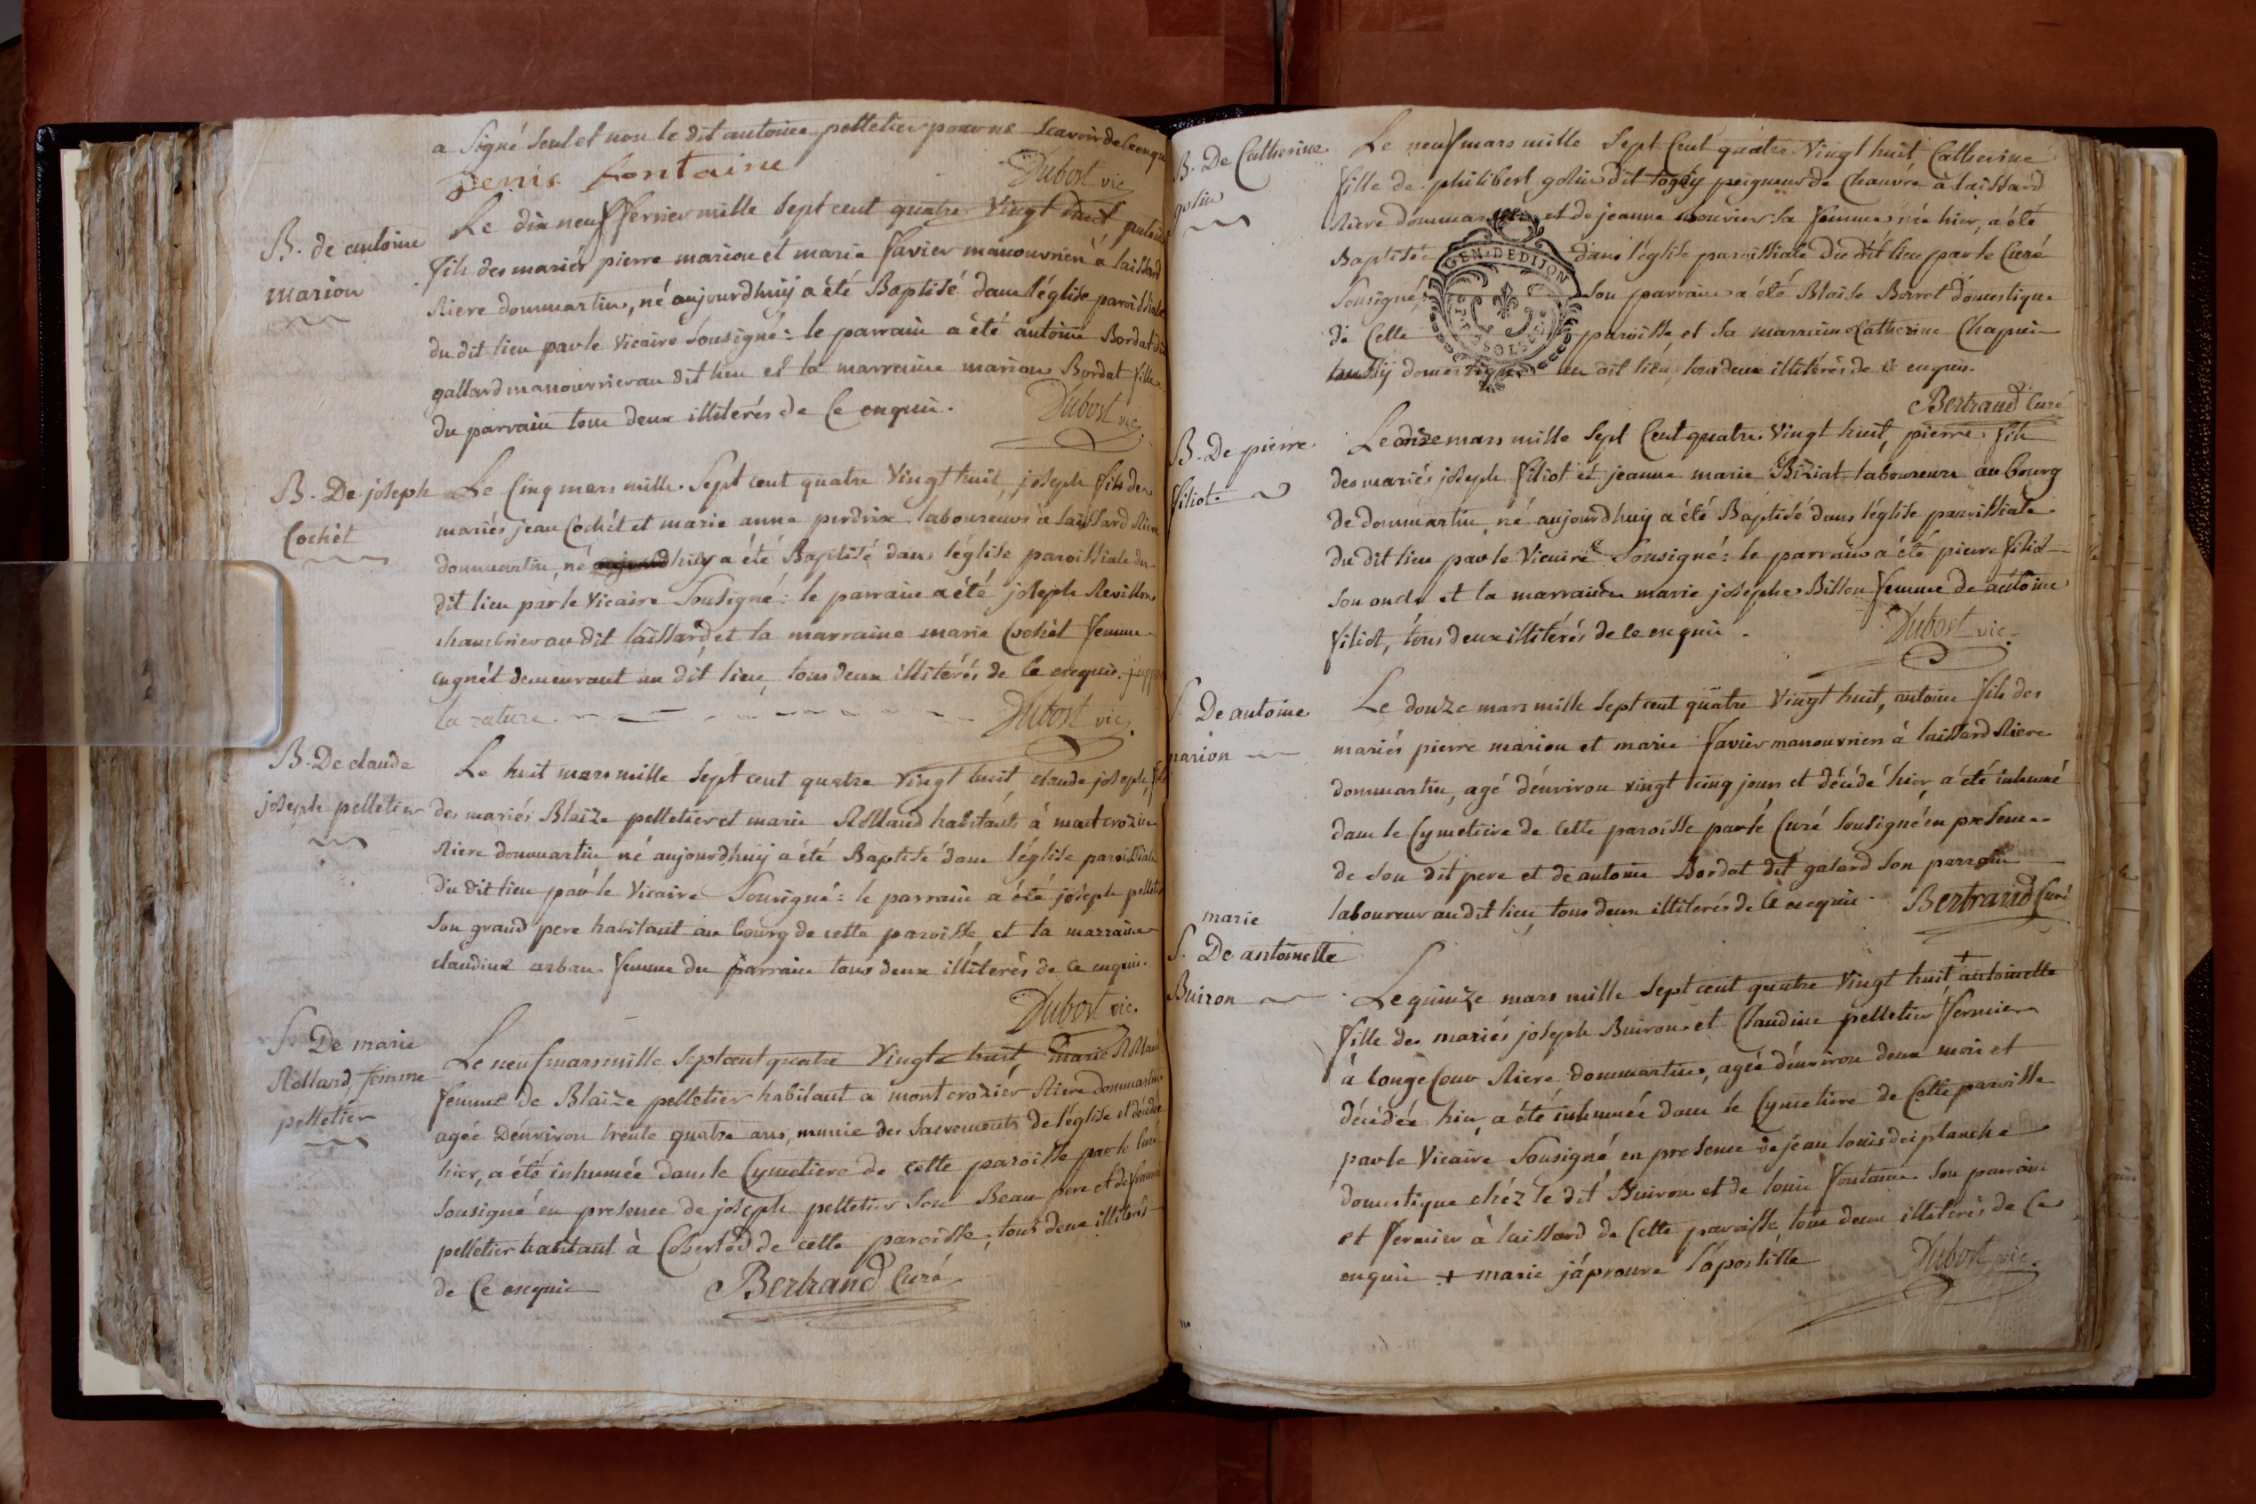 a signé seul et non le dit antoine pelletier pour ne scavoir de ce enquis
Denis fontaine
Dubost vic.
B. de antoine
marion
Le dix neuf fevrier mille sept cent quatre vingt huit
fils des mariés pierre marion et marie favier manouvrien à laissard
Riere dommartin, né aujourdhuÿ a été Baptisé dans l'église paroissiale
du dit lieu par le Vicaire Sousigné: le parrain a été antoine Bordat dit
gallard manouvrier au dit lieu et la marraine marion Bordat fille
du parrain tous deux illiterés de Ce enquis.
Dubost vic.
B. De joseph
Cochèt
Le Cinq mars mille Sept cent quatre Vingt huit, joseph fils des
mariés jean Cochét et marie anne perdrix laboureurs à laissard Riere
dommartin, né huÿ a été Baptisé dans l'église paroissiale du
dit lieu par le Vicaire Sousigné: le parrain a été joseph Revillon
chambrier au dit laissard, et la marraine marie Cochèt femme
cugnét demeurant au dit lieu, tous deux illiterés de Ce enquis.
la rature
Dubost vic.
B. De claude
joseph pelletier
Le huit mars mille Sept cent quatre Vingt huit, claude joseph, fils
des mariés Blaize pelletier et marie Rolland habitants à montcrozier
Riere dommartin né aujourdhuÿ a été Baptisé dans l'église paroissiale
du dit lieu par le Vicaire Sousigné: le parrain a été joseph pelletier
Son grand pere habitant au bourg de cette paroisse, et la marraine
claudine arban femme du parrain tous deux illiterés de ce enquis.
Dubost vic.
S. De marie
Rolland femme
pelletier
Le neuf mars mille Sept cent quatre Vingt huit, marie Rolland
femme de Blaize pelletier habitant a montcrozier Riere dommartin
agée Dénviron trente quatre ans, munie des Sacrements de l'église et décédée
hier, a été inhumée dans le Cymetiere de cette paroisse par le Curé
Sousigné en presence de joseph pelletier Son Beau pere et de
pelletier habitant à de cette paroisse, tous deux illiterés
de Ce enquis
Bertrand Curé
B. De Catherine
golin
Le neuf mars mille Sept Cent quatre Vingt huit Catherine
fille de philibert golin dit peigneur de Chanvre à laissard
Riere dommartin et de jeanne bouvier sa femme née hier, a été
Baptisée dans l'église paroissiale du dit lieu par le Curé
Sousigné, Son parrain a été Blaise Borrot domestique
de Cette paroisse, et Sa marraine Catherine Chapuis
aussy domestique au dit lieu, tous deux illiterés de ce enquis.
GEN. DE DIJON
Bertrand Curé
B. De pierre
filiot
Le onze mars mille Sept Cent quatre Vingt huit, pierre fils
des mariés joseph filiot et jeanne marie Biziat laboureurs au bourg
de dommartin né aujourdhuy a été Baptisé dans l'église paroissiale
du dit lieu par le Vicaire Sousigné: le parrain a été pierre filiot
Son oncle et la marraine marie josephe Billon femme de antoine
filiot, tous deux illiterés de ce enquis.
Dubost vic.
S. De antoine
marion
Le douze mars mille Sept cent quatre Vingt huit, antoine fils des
mariés pierre marion et marie favier manouvrien à laissard Riere
dommartin, agé dénviron vingt cinq jours et décédé hier, a été inhumé
dans le Cymetiere de cette paroisse par le Curé Sousigné en presence
de Son dit pere et de antoine Bordat dit galard Son parrain
laboureur au dit lieu, tous deux illiterés de Ce enquis.
Bertrand Curé
marie
S. De antoinette
Buiron
Le quinze mars mille Sept cent quatre Vingt huit, + antoinette
fille des mariés joseph Buiron et Claudine pelletier fermiers
à longecour Riere dommartin, agée dénviron deux mois et
décédée hier, a été inhumée dans le Cymetiere de Cette paroisse
par le Vicaire Sousigné en presence de jean louis desplanche
domestique chéz le dit Buiron et de louis fontaine Son parrain
et fermier à laissard de Cette paroisse, tous deux illiterés de Ce
enquis + marie j'aprouve l'apostille
Dubost vic.